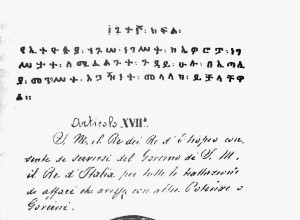 ፲፯ተኛ፡ ክፍል፡
የኢትዮጵያ፡ ንጉሠ፡ ነገሥት፡ ከኤዎሮፓ፡ ነገ
ሥታት፡ ለሚፈልጉት፡ ጉዳይ፡ ሁሉ፡ በኢጣሊ
ያ፡ መንግሥት፡ አጋዥነት፡ መላላክ፡ ይቻላቸዋ
ል።
Articolo XVII°.
S. M. il Re dei Re d'Etiopia con
sente di servirsi del Governo di S. M.
il Re d'Italia per tutte le trattazioni
di affari che avesse con altre Potenze o
Governi.